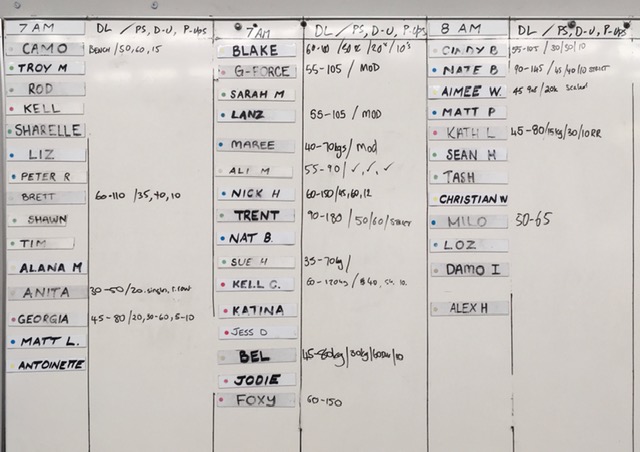 7 AM DL / PS, D-U, P-ups
CAMO BENCH / 50, 60, 15
TROY M
ROD
KELL
SHARELLE
LIZ
PETER R
BRETT 60-110 / 35, 40, 10
SHAWN
TIM
ALANA M
ANITA 30-50 / 20.
GEORGIA 45-80 / 20, 30-60, 5-10
MATT L.
ANTOINETTE
7AM DL / PS, D-U, P-UPS
BLAKE
G-FORCE 55-105 / MOD
SARAH M
LANZ 55-105 / MOD
MAREE 40-70kgs / Mod
ALI M 55-90 / ✓, ✓, ✓
NICK H 60-150 / 45, 60, 12
TRENT 90-180 / 50/60/STRICT
NAT B.
SUE H 35-70kg /
KELL C.
KATINA
JESS D
BEL
JODIE
FOXY 60-150
8 AM DL / PS, D-U, P-UPS
CINDY B 55-105 / 30/30/10
NATE B 90-145 / 45/40/10 STRICT
AIMEE W. Scaled
MATT P
KATH L 45-80/15kg/30/10RR
SEAN H
TASH
CHRISTIAN W
MILO 50-65
LOZ
DAMO I
ALEX H